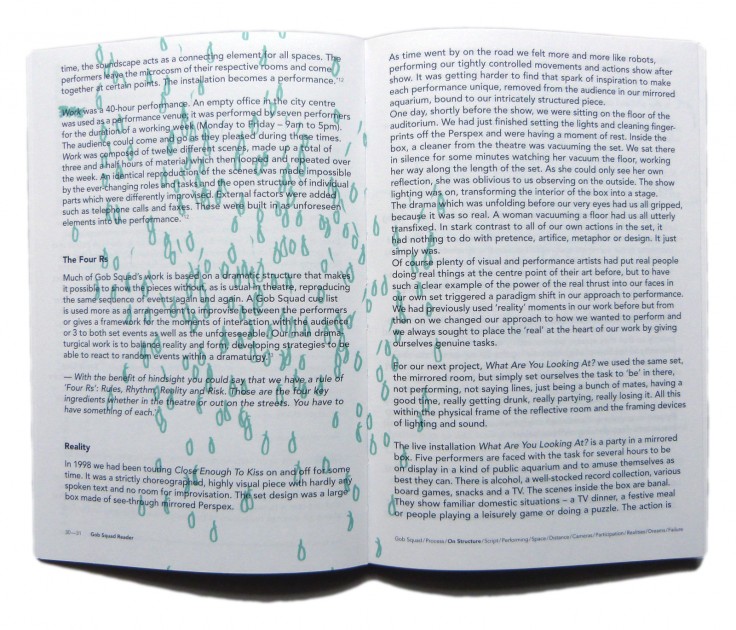 time, the soundscape acts as a connecting element for all spaces. The
performers leave the microcosm of their respective rooms and come
together at certain points. The installation becomes a performance."12
Work was a 40-hour performance. An empty office in the city centre
was used as a performance venue, it was performed by seven performers
for the duration of a working week (Monday to Friday – 9am to 5pm).
The audience could come and go as they pleased during those times.
Work was composed of twelve different scenes, made up a total of
three and a half hours of material which then looped and repeated over
the week. An identical reproduction of the scenes was made impossible
by the ever-changing roles and tasks and the open structure of individual
parts which were differently improvised. External factors were added
such as telephone calls and faxes. These were built in as unforeseen
elements into the performance.
The Four Rs
Much of Gob Squad's work is based on a dramatic structure that makes
it possible to perform pieces without, as is usual in theatre, reproducing
the same sequence of events again and again. A Gob Squad cue list
is used more as an arrangement to improvise between the performers
or gives a framework for the moments of interaction with the audience
or 3 to both set events as well as the unforeseeable. Our main drama-
turgical work is to balance reality and form, developing strategies to be
able to react to random events within a dramaturgy.
— With the benefit of hindsight you could say that we have a rule of
'Four Rs': Rules, Rhythm, Reality and Risk. Those are the four key
ingredients whether in the theatre or out on the streets. You have to
have something of each.
Reality
In 1998 we had been touring Close Enough To Kiss on and off for some
time. It was a strictly choreographed, highly visual piece with hardly any
spoken text and no room for improvisation. The set design was a large
box made of see-through mirrored Perspex.
20—21 Gob Squad Reader
As time went by on the road we felt more and more like robots,
performing our tightly controlled movements and actions show after
show. It was getting harder to find that spark of inspiration to make
each performance unique, removed from the audience in our mirrored
aquarium, bound to our intricately structured piece.
One day, shortly before the show, we were sitting on the floor of the
auditorium. We had just finished setting the lights and cleaning finger-
prints off the Perspex and were having a moment of rest. Inside the
box, a cleaner from the theatre was vacuuming the set. We sat there
in silence for some minutes watching her vacuum the floor, working
her way along the length of the set. As she could only see her own
reflection, she was oblivious to us observing on the outside. The show
lighting was on, transforming the interior of the box into a stage.
The drama which was unfolding before our very eyes had us all gripped,
because it was so real. A woman vacuuming a floor had us all utterly
transfixed. In stark contrast to all of our own actions in the set, it
had nothing to do with pretence, artifice, metaphor or design. It just
simply was.
Of course plenty of visual and performance artists had put real people
doing real things at the centre point of their art before, but to have
such a clear example of the power of the real thrust into our faces in
our own set triggered a paradigm shift in our approach to performance.
We had previously used 'reality' moments in our work before but from
then on we changed our approach to how we wanted to perform and
we always sought to place the 'real' at the heart of our work by giving
ourselves genuine tasks.
For our next project, What Are You Looking At? we used the same set,
the mirrored room, but simply set ourselves the task to 'be' in there,
not performing, not saying lines, just being a bunch of mates, having a
good time, really getting drunk, really partying, really losing it. All this
within the physical frame of the reflective room and the framing devices
of lighting and sound.
The live installation What Are You Looking At? is a party in a mirrored
box. Five performers are faced with the task for several hours to be
on display in a kind of public aquarium and to amuse themselves as
best they can. There is alcohol, a well-stocked record collection, various
board games, snacks and a TV. The scenes inside the box are banal.
They show familiar domestic situations – a TV dinner, a festive meal
or people playing a leisurely game or doing a puzzle. The action is
Gob Squad/Process/On Structure/Script/Performing/Space/Distance/Cameras/Participation/Realness/Dreams/Failure